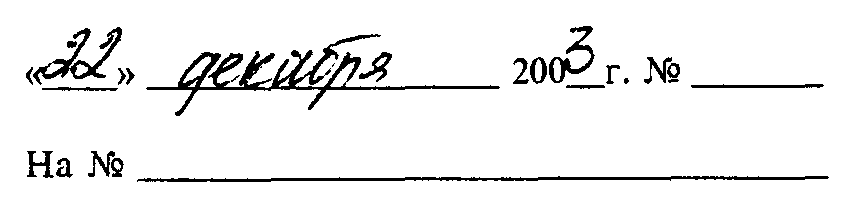 «22» декабря 2003 г. №
На №